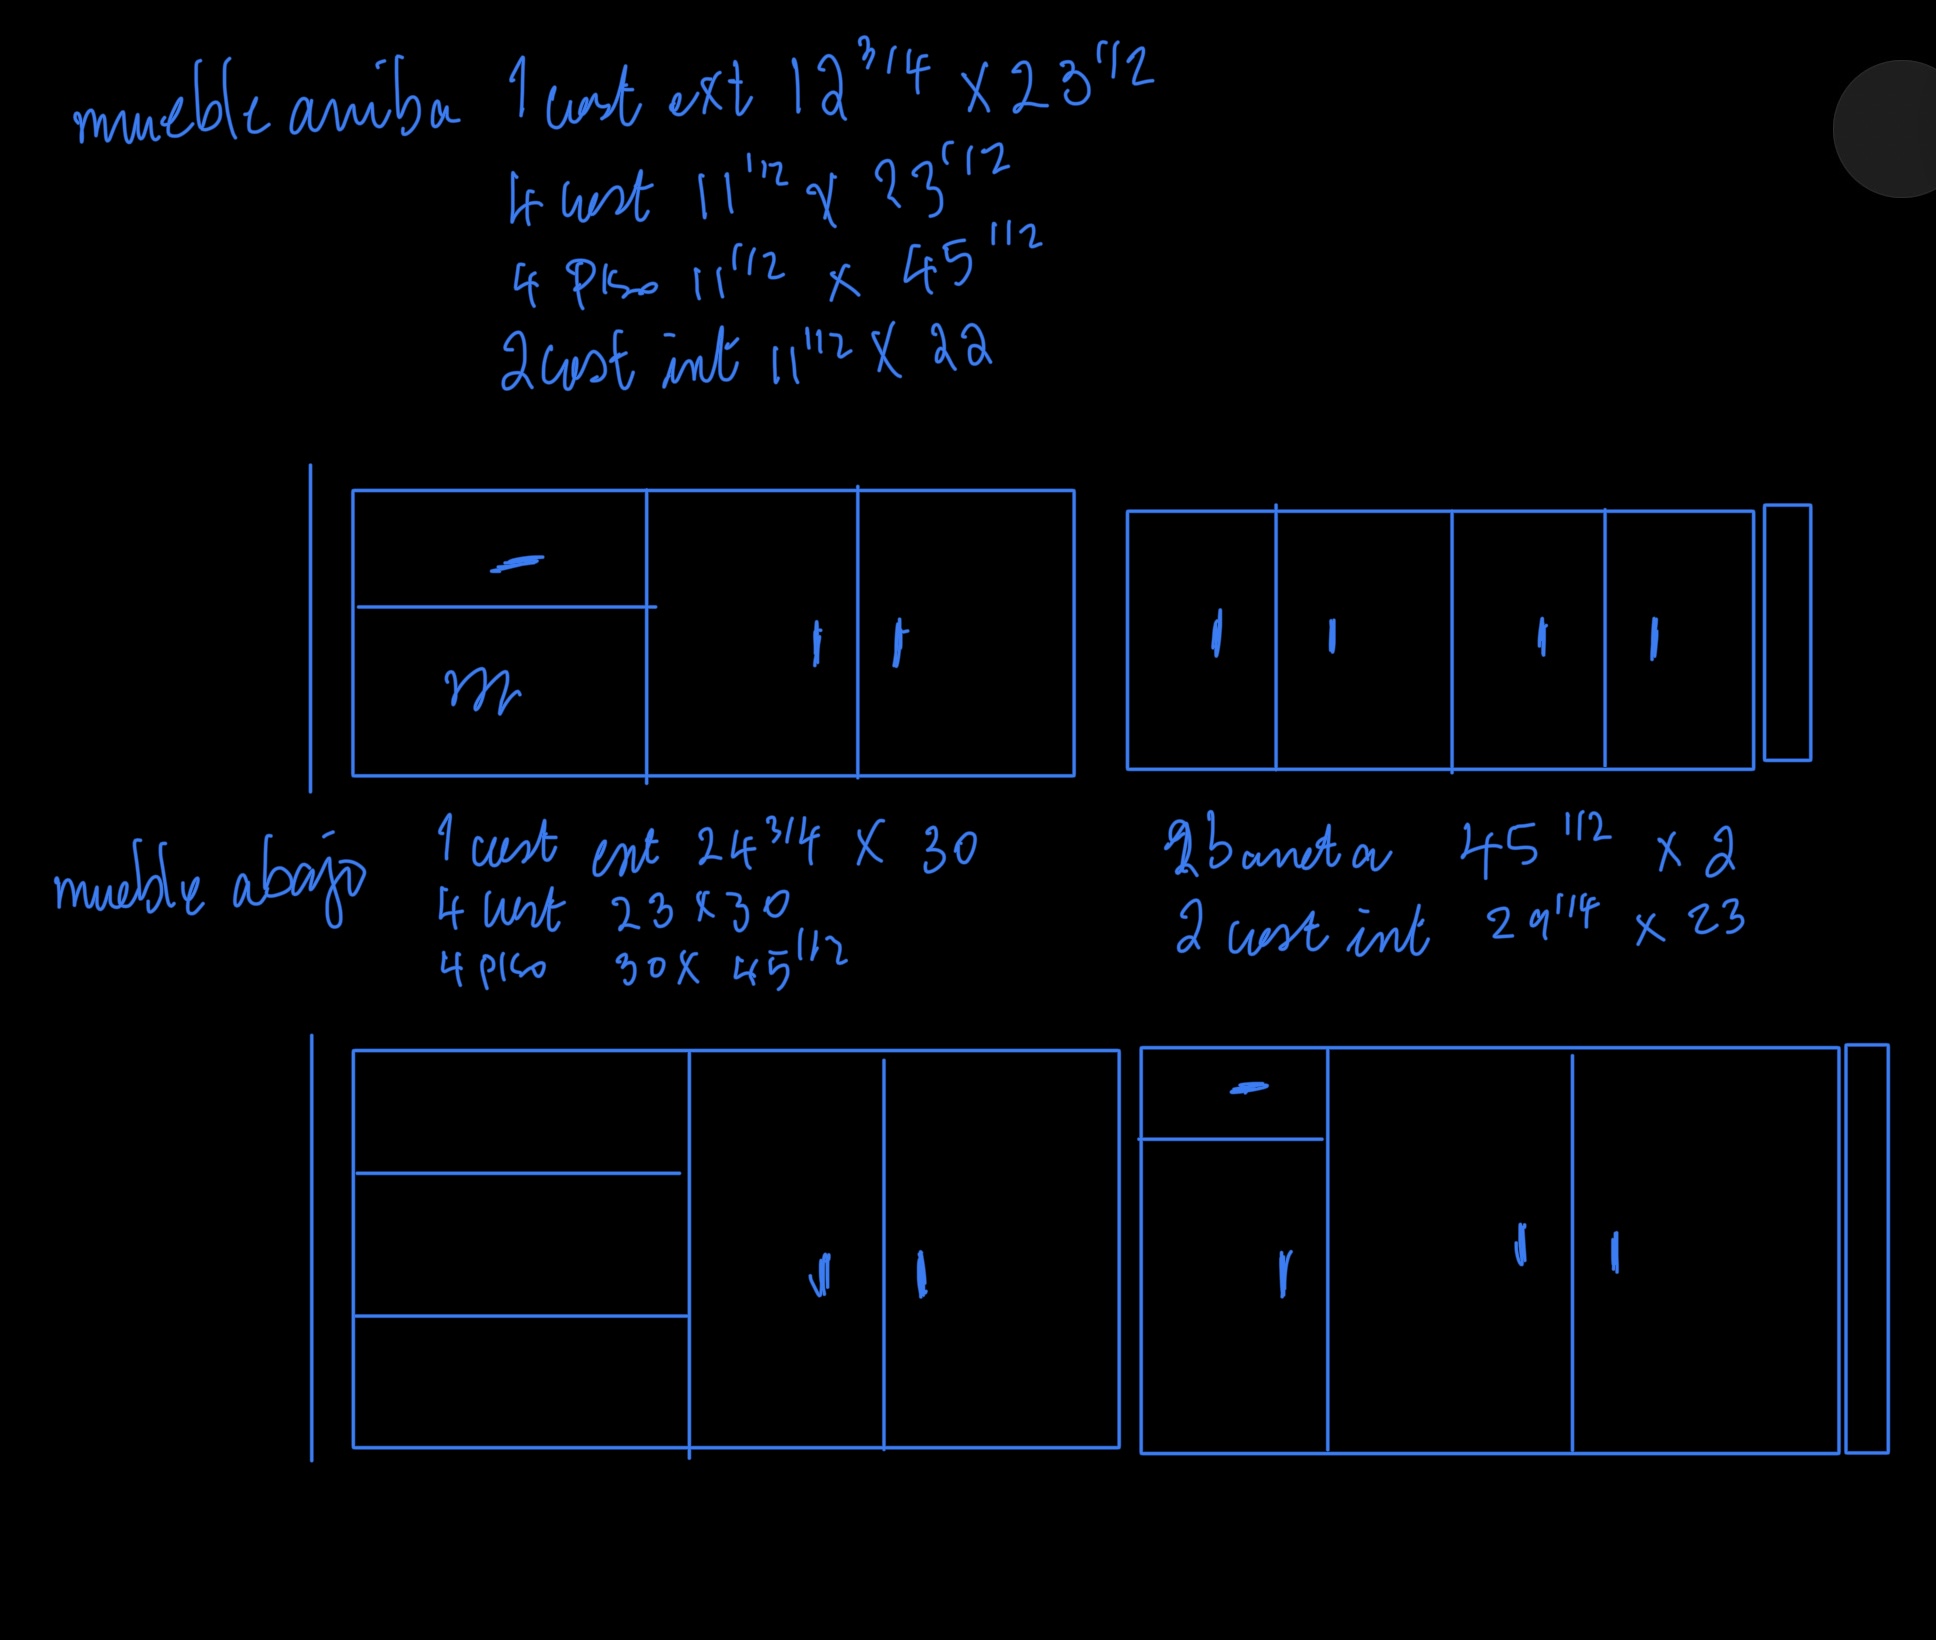 mueble arriba 1 cost ext 12 3/4 x 23 1/2
4 cost 11 1/2 x 23 1/2
4 Piso 11 1/2 x 45 1/2
2 cost int 11 1/2 x 22
m
mueble abajo 1 cost ext 24 3/4 x 30
4 cost 23 x 30
4 piso 30 x 45 1/2
2 baneta 45 1/2 x 2
2 cost int 29 1/4 x 23